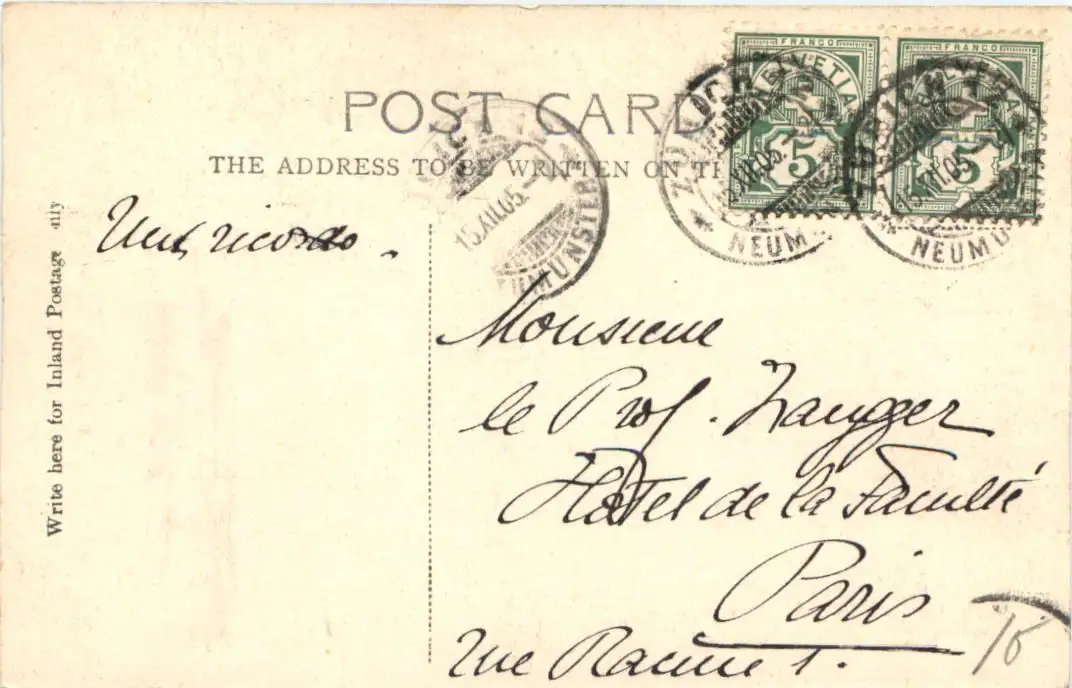 POST CARD
THE ADDRESS TO BE WRITTEN ON TH
FRANCO
HELVETIA
5
FRANCO
HELVETIA
5
ZÜRICH
15.XII.05.
NEUM
ZÜRICH
XII.05
NEUMÜ
15.XII.05.
MÜNSTER
Write here for Inland Postage only
ricordo
Monsieur
le Prof. Zangger
Hotel de la Faculté
Paris
Rue Racine 1.